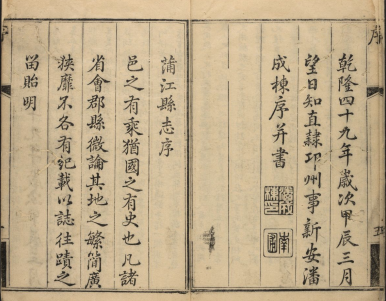 序
乾隆四十九年歲次甲辰三月
望日知直隸邛州事新安潘
成棟序并書
蒲江縣志序
邑之有乘猶國之有史也凡諸
省會郡縣微論其地之繁簡廣
狹靡不各有紀載以誌往蹟之
留貽明